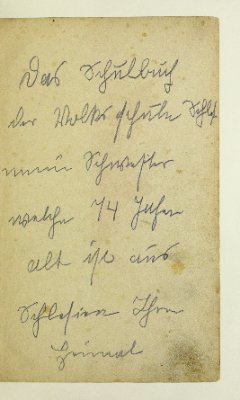 Das Schulbuch
der Volksschule Schles
meine Schwester
welche 74 Jahre
alt ist aus
Schlesien Ihrer
Heimat